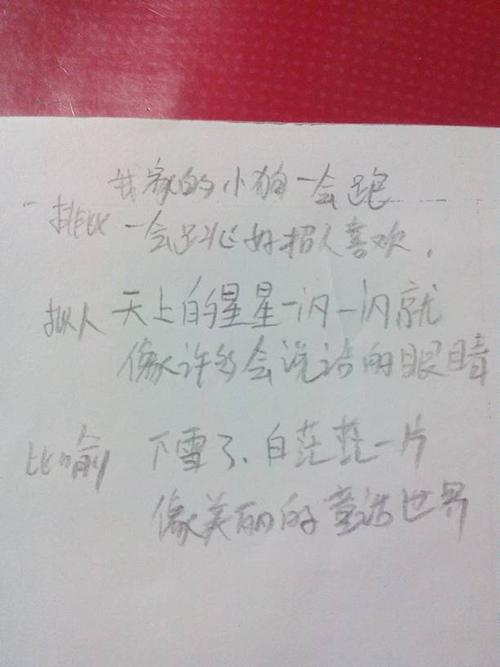 我家的小狗一会跑
排比 一会跳 好招人喜欢,
拟人 天上的星星一闪一闪就
像许多会说话的眼睛
比喻 下雪了、白茫茫一片
像美丽的童话世界